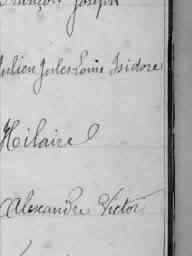 François Joseph
Julien Jules Louis Isidore
Hilaire
Alexandre Victor